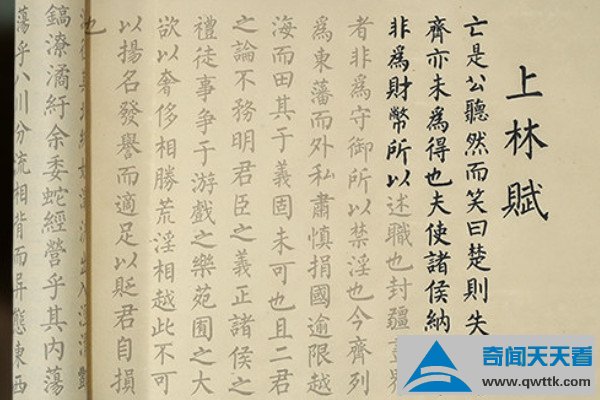 上林賦
亡是公聽然而笑曰楚則失
齊亦未爲得也夫使諸侯納
非爲財幣所以述職也封疆畫界
者非爲守御所以禁淫也今齊列
爲東藩而外私肅慎捐國逾限越
海而田其于義固未可也且二君
之論不務明君臣之義正諸侯之
禮徒事争于游戲之樂苑囿之大
欲以奢侈相勝荒淫相越此不可
以揚名發譽而適足以貶君自損
也
出入涇渭酆
鎬潦潏紆余委蛇經營乎其内蕩
蕩乎八川分流相背而异態東西
奇闻天天看
www.qwttk.com